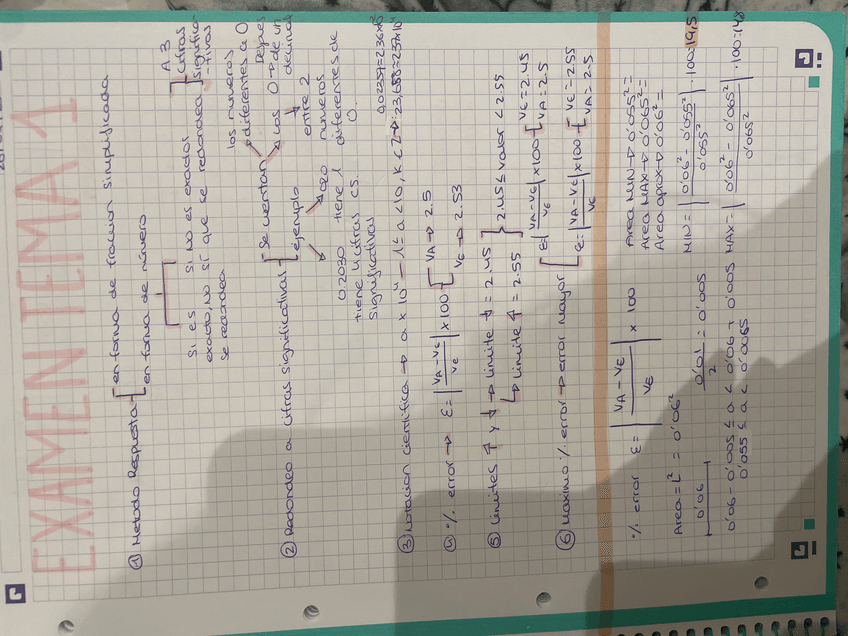 EXAMEN TEMA 1
① Metodo Respuesta
en forma de fraccion simplificada
en forma de número
si es exacto, no se redondea
si no es exacto sí que se redondea
A 3 cifras significativas
② Redondeo a cifras significativas
se cuentan
los números diferentes a 0
Los 0 → de un decimal
entre 2 números diferentes de 0.
ejemplo
0.2030 tiene 4 cifras significativas
020 tiene 1 cs.
③ Notacion cientifica → a x 10ᴷ — 1 ≤ a < 10, K ∈ Z →
④ % error → ε = | VA - VE / VE | x 100
VA → 2.5
VE → 2.53
⑤ Limites ↑ y ↓
→ Limite ↓ = 2.45
→ Limite ↑ = 2.55
2.45 ≤ valor < 2.55
⑥ Maximo % error → error mayor
ε = | VA - VE / VE | x 100
VE = 2.45
VA = 2.5
ε = | VA - VE / VE | x 100
VE = 2.55
VA = 2.5
% error ε = | VA - VE / VE | x 100
Area = L² = 0'06²
0'06
0'01 / 2 = 0'005
0'06 - 0'005 ≤ a < 0'06 + 0'005
0'055 ≤ a < 0'0065
Area MIN → 0'055² =
Area MAX → 0'065² =
Area aprox → 0'06² =
MIN = | 0'06² - 0'055² / 0'055² | · 100 = 19,5
MAX = | 0'06² - 0'065² / 0'065² | · 100 =